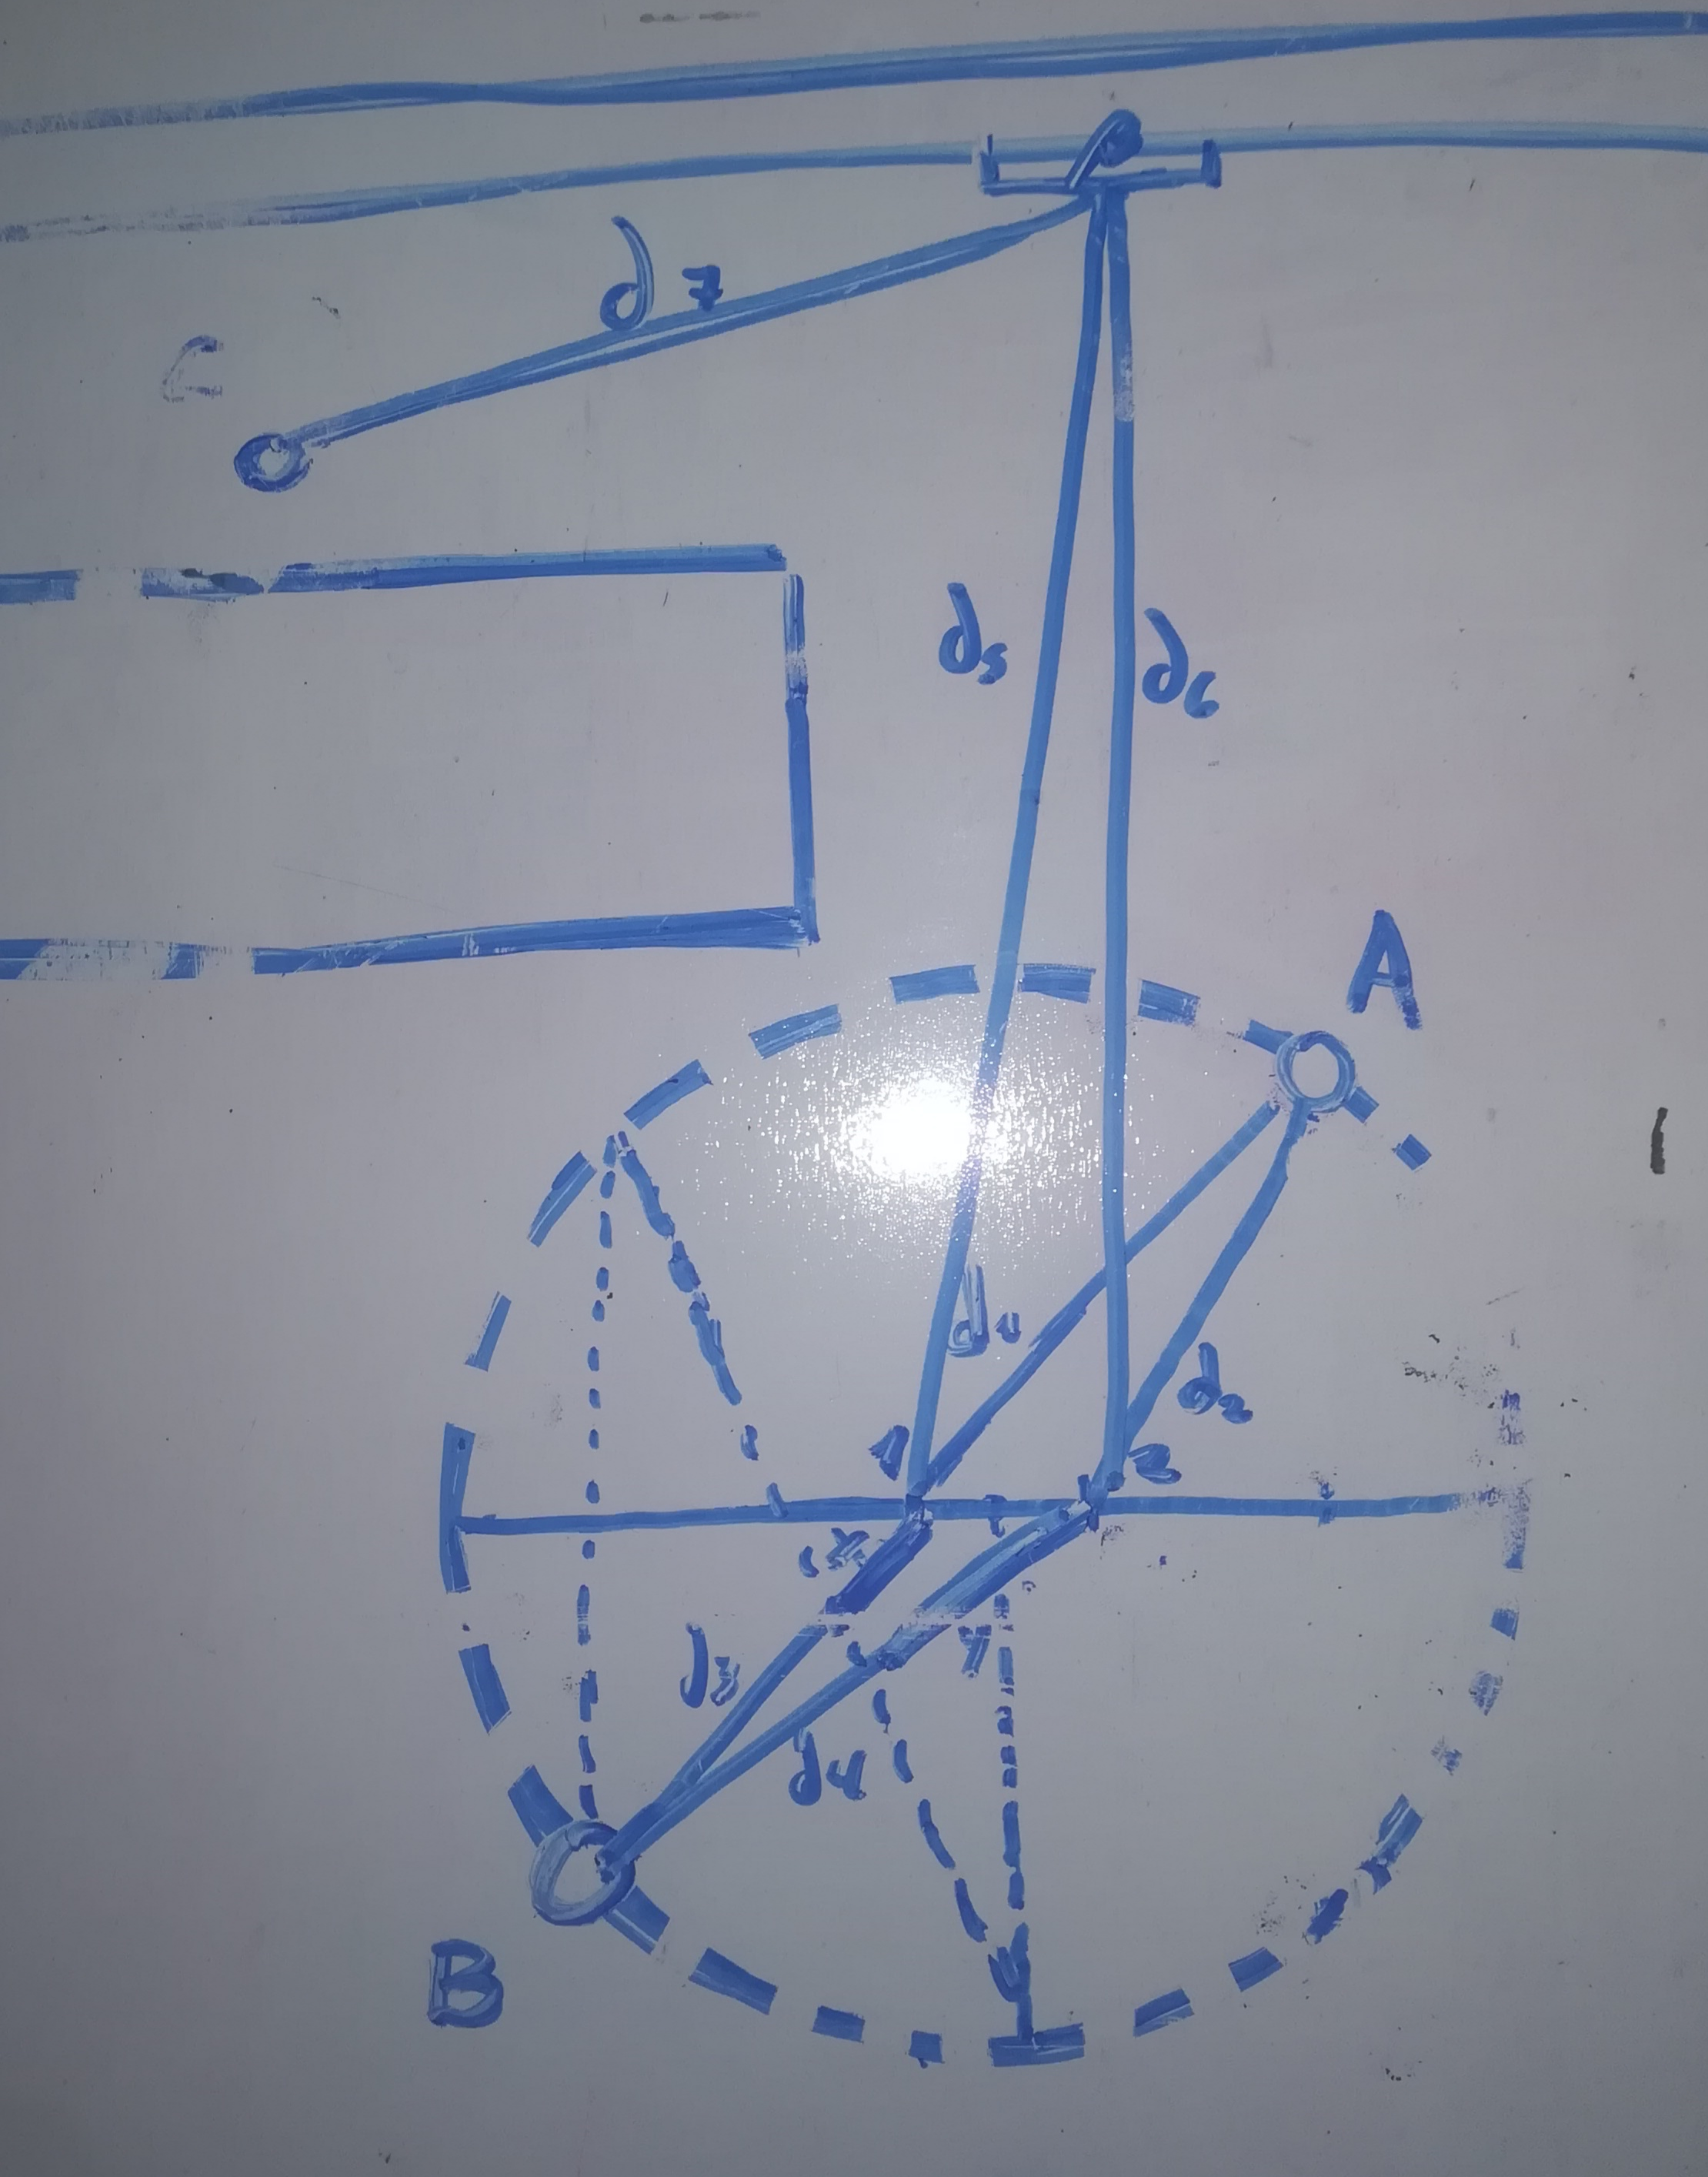 C
d7
d5
d6
A
d1
d2
1
2
d3
d4
B